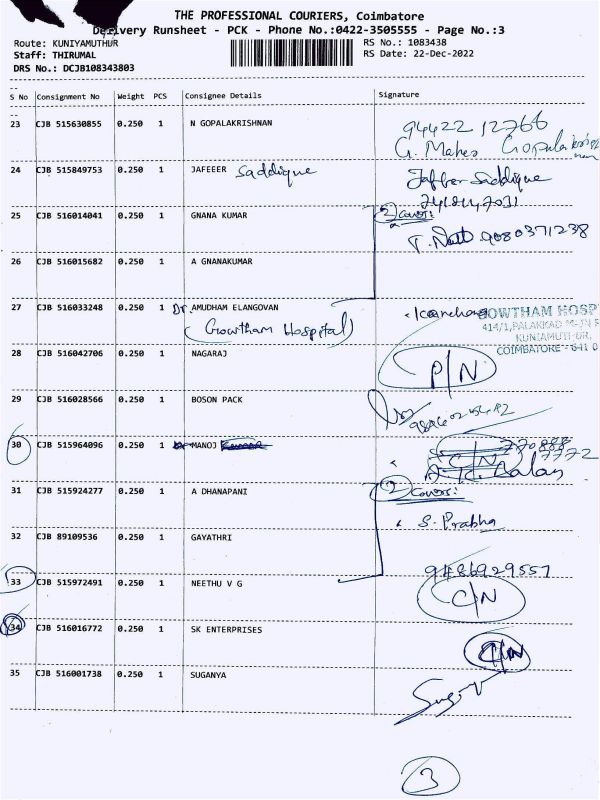 THE PROFESSIONAL COURIERS, Coimbatore
Delivery Runsheet - PCK - Phone No.:0422-3505555 - Page No.:3
Route: KUNIYAMUTHUR
RS No.: 1083438
Staff: THIRUMAL
RS Date: 22-Dec-2022
DRS No.: DCJB108343803
S No Consignment No Weight PCS Consignee Details Signature
23 CJB 515630855 0.250 1 N GOPALAKRISHNAN
94422 12766
G. Mahes Gopalakrishnan
24 CJB 515849753 0.250 1 JAFEEER Saddique
Jaffer Saddique
25 CJB 516014041 0.250 1 GNANA KUMAR
2 Covers:
9080371238
26 CJB 516015682 0.250 1 A GNANAKUMAR
27 CJB 516033248 0.250 1 Dr. AMUDHAM ELANGOVAN
(Gowtham Hospital)
GOWTHAM HOSP
414/1, PALAKKAD
COIMBATORE - 641 0
28 CJB 516042706 0.250 1 NAGARAJ
P/N
29 CJB 516028566 0.250 1 BOSON PACK
30 CJB 515964096 0.250 1 MANOJ
31 CJB 515924277 0.250 1 A DHANAPANI
2 Covers:
S. Prabha
32 CJB 89109536 0.250 1 GAYATHRI
9486929557
33 CJB 515972491 0.250 1 NEETHU V G
C/N
34 CJB 516016772 0.250 1 SK ENTERPRISES
35 CJB 516001738 0.250 1 SUGANYA
3